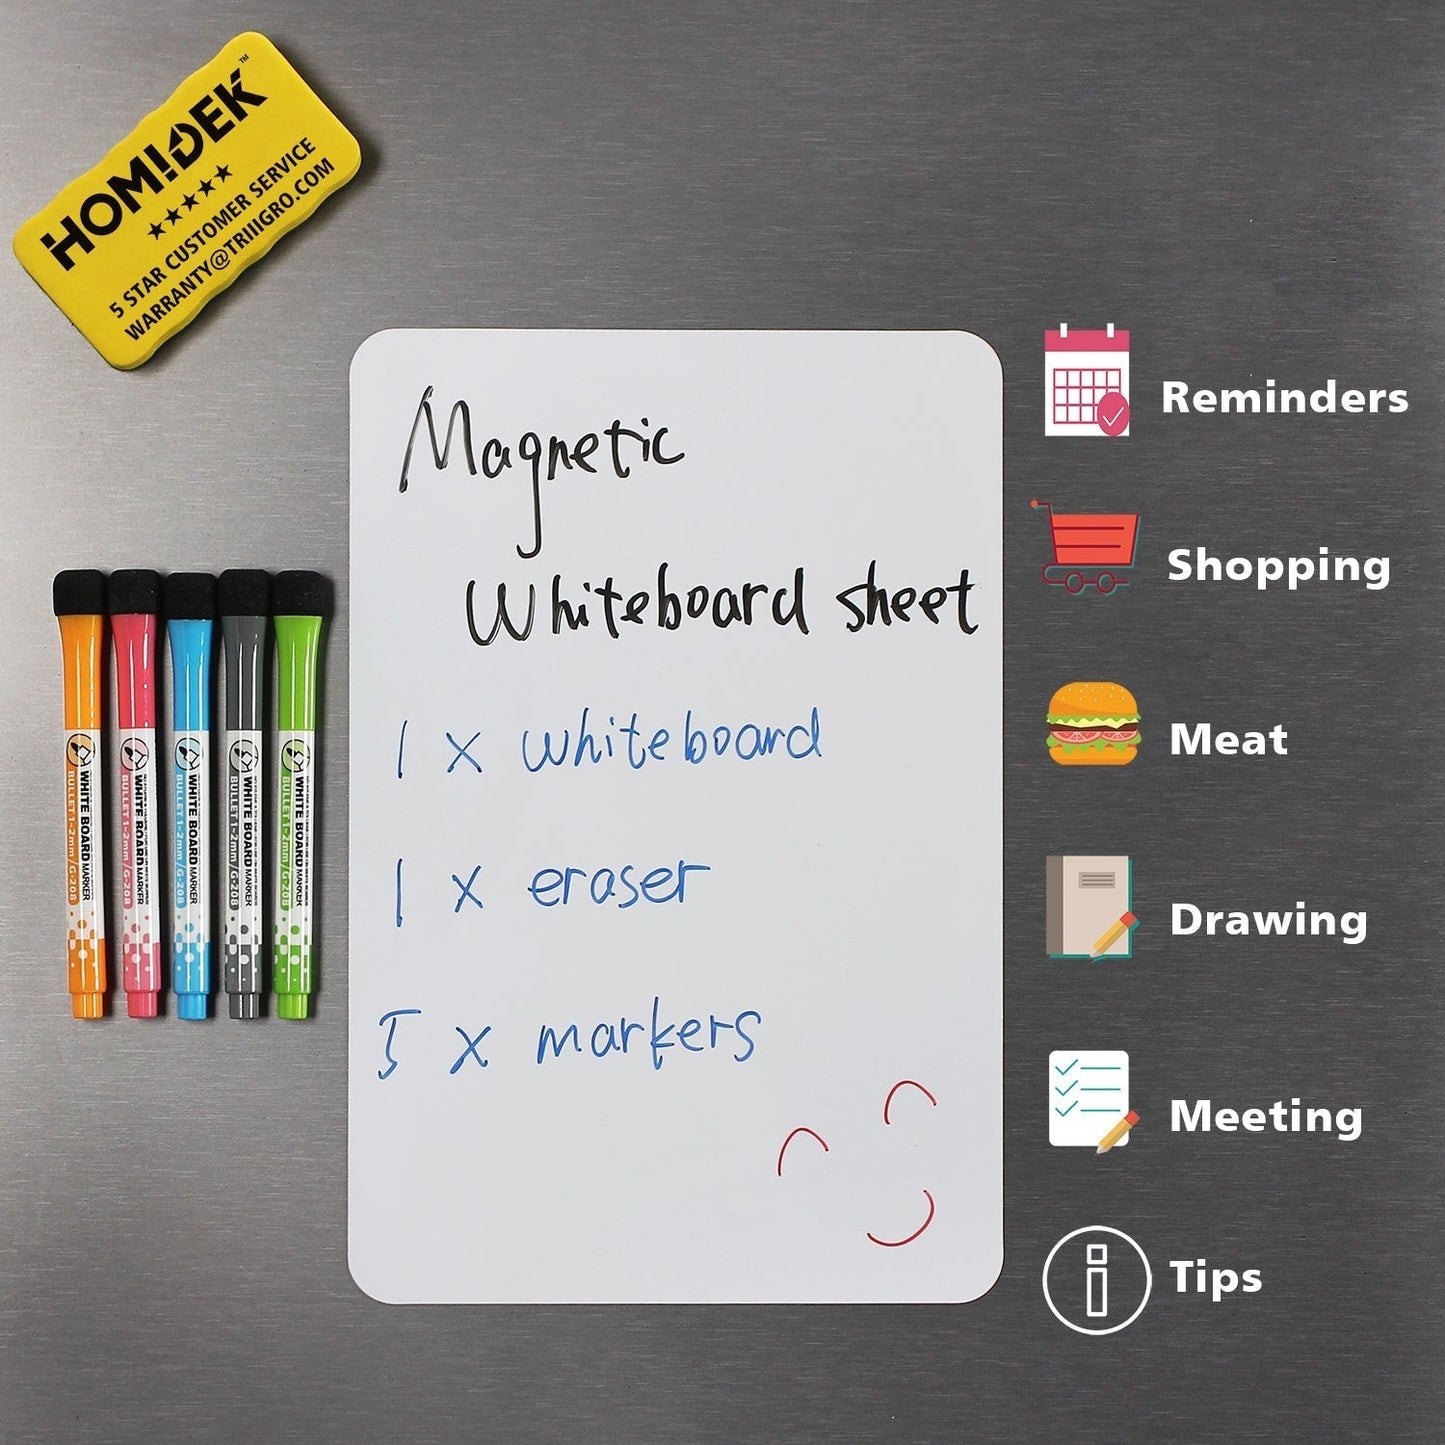 HOMIDEK™
★★★★★
5 STAR CUSTOMER SERVICE
WARRANTY@TRIIIGRO.COM
Magnetic
Whiteboard sheet
1 x whiteboard
1 x eraser
5 x markers
WHITE BOARD MARKER
BULLET 1-2mm/G-208
WHITE BOARD MARKER
BULLET 1-2mm/G-208
WHITE BOARD MARKER
BULLET 1-2mm/G-208
WHITE BOARD MARKER
BULLET 1-2mm/G-208
WHITE BOARD MARKER
BULLET 1-2mm/G-208
Reminders
Shopping
Meat
Drawing
Meeting
Tips